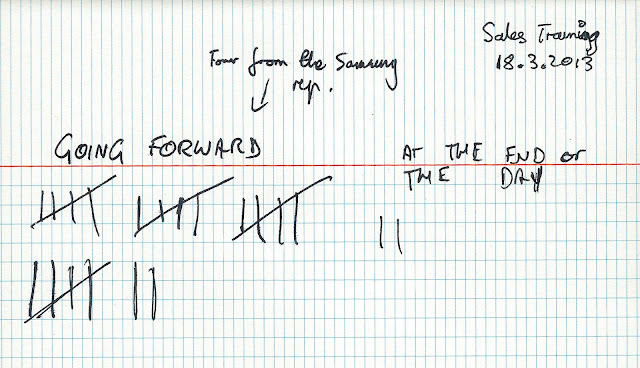 Sales Training
18.3.2013
Four from the Samsung
rep.
GOING FORWARD
AT THE END OF
THE DAY